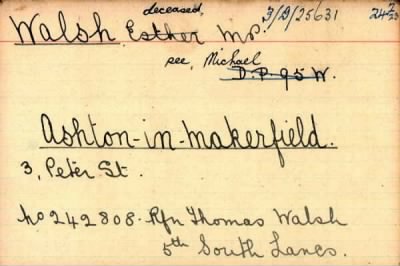 deceased, 3/D/25631 24 2/23
Walsh Esther Mrs.
see, Michael
D.P. 95 W.
Ashton-in-Makerfield.
3, Peter St.
No 242808. Rfn Thomas Walsh
5th South Lancs.